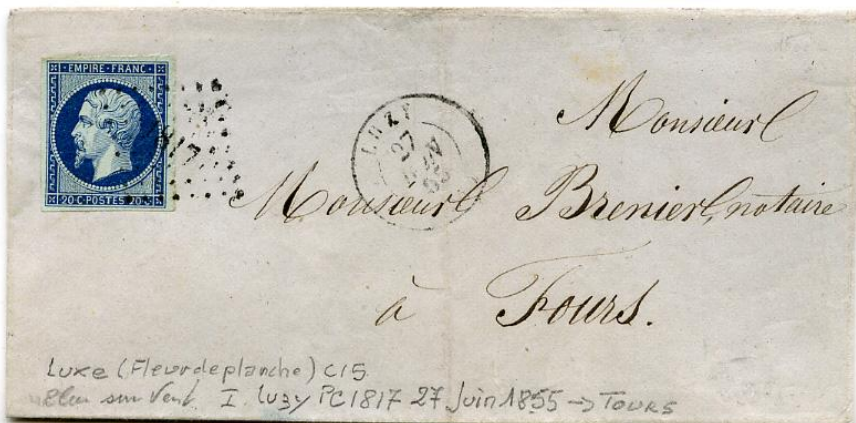 EMPIRE-FRANC
20·C·POSTES 20·C
LUZY
27
Monsieur
Monsieur Brenier, notaire
à Fours.
Luxe (Fleur de planche) C15
Bleu sur Vert I. Luzy PC1817 27 Juin 1855 → TOURS